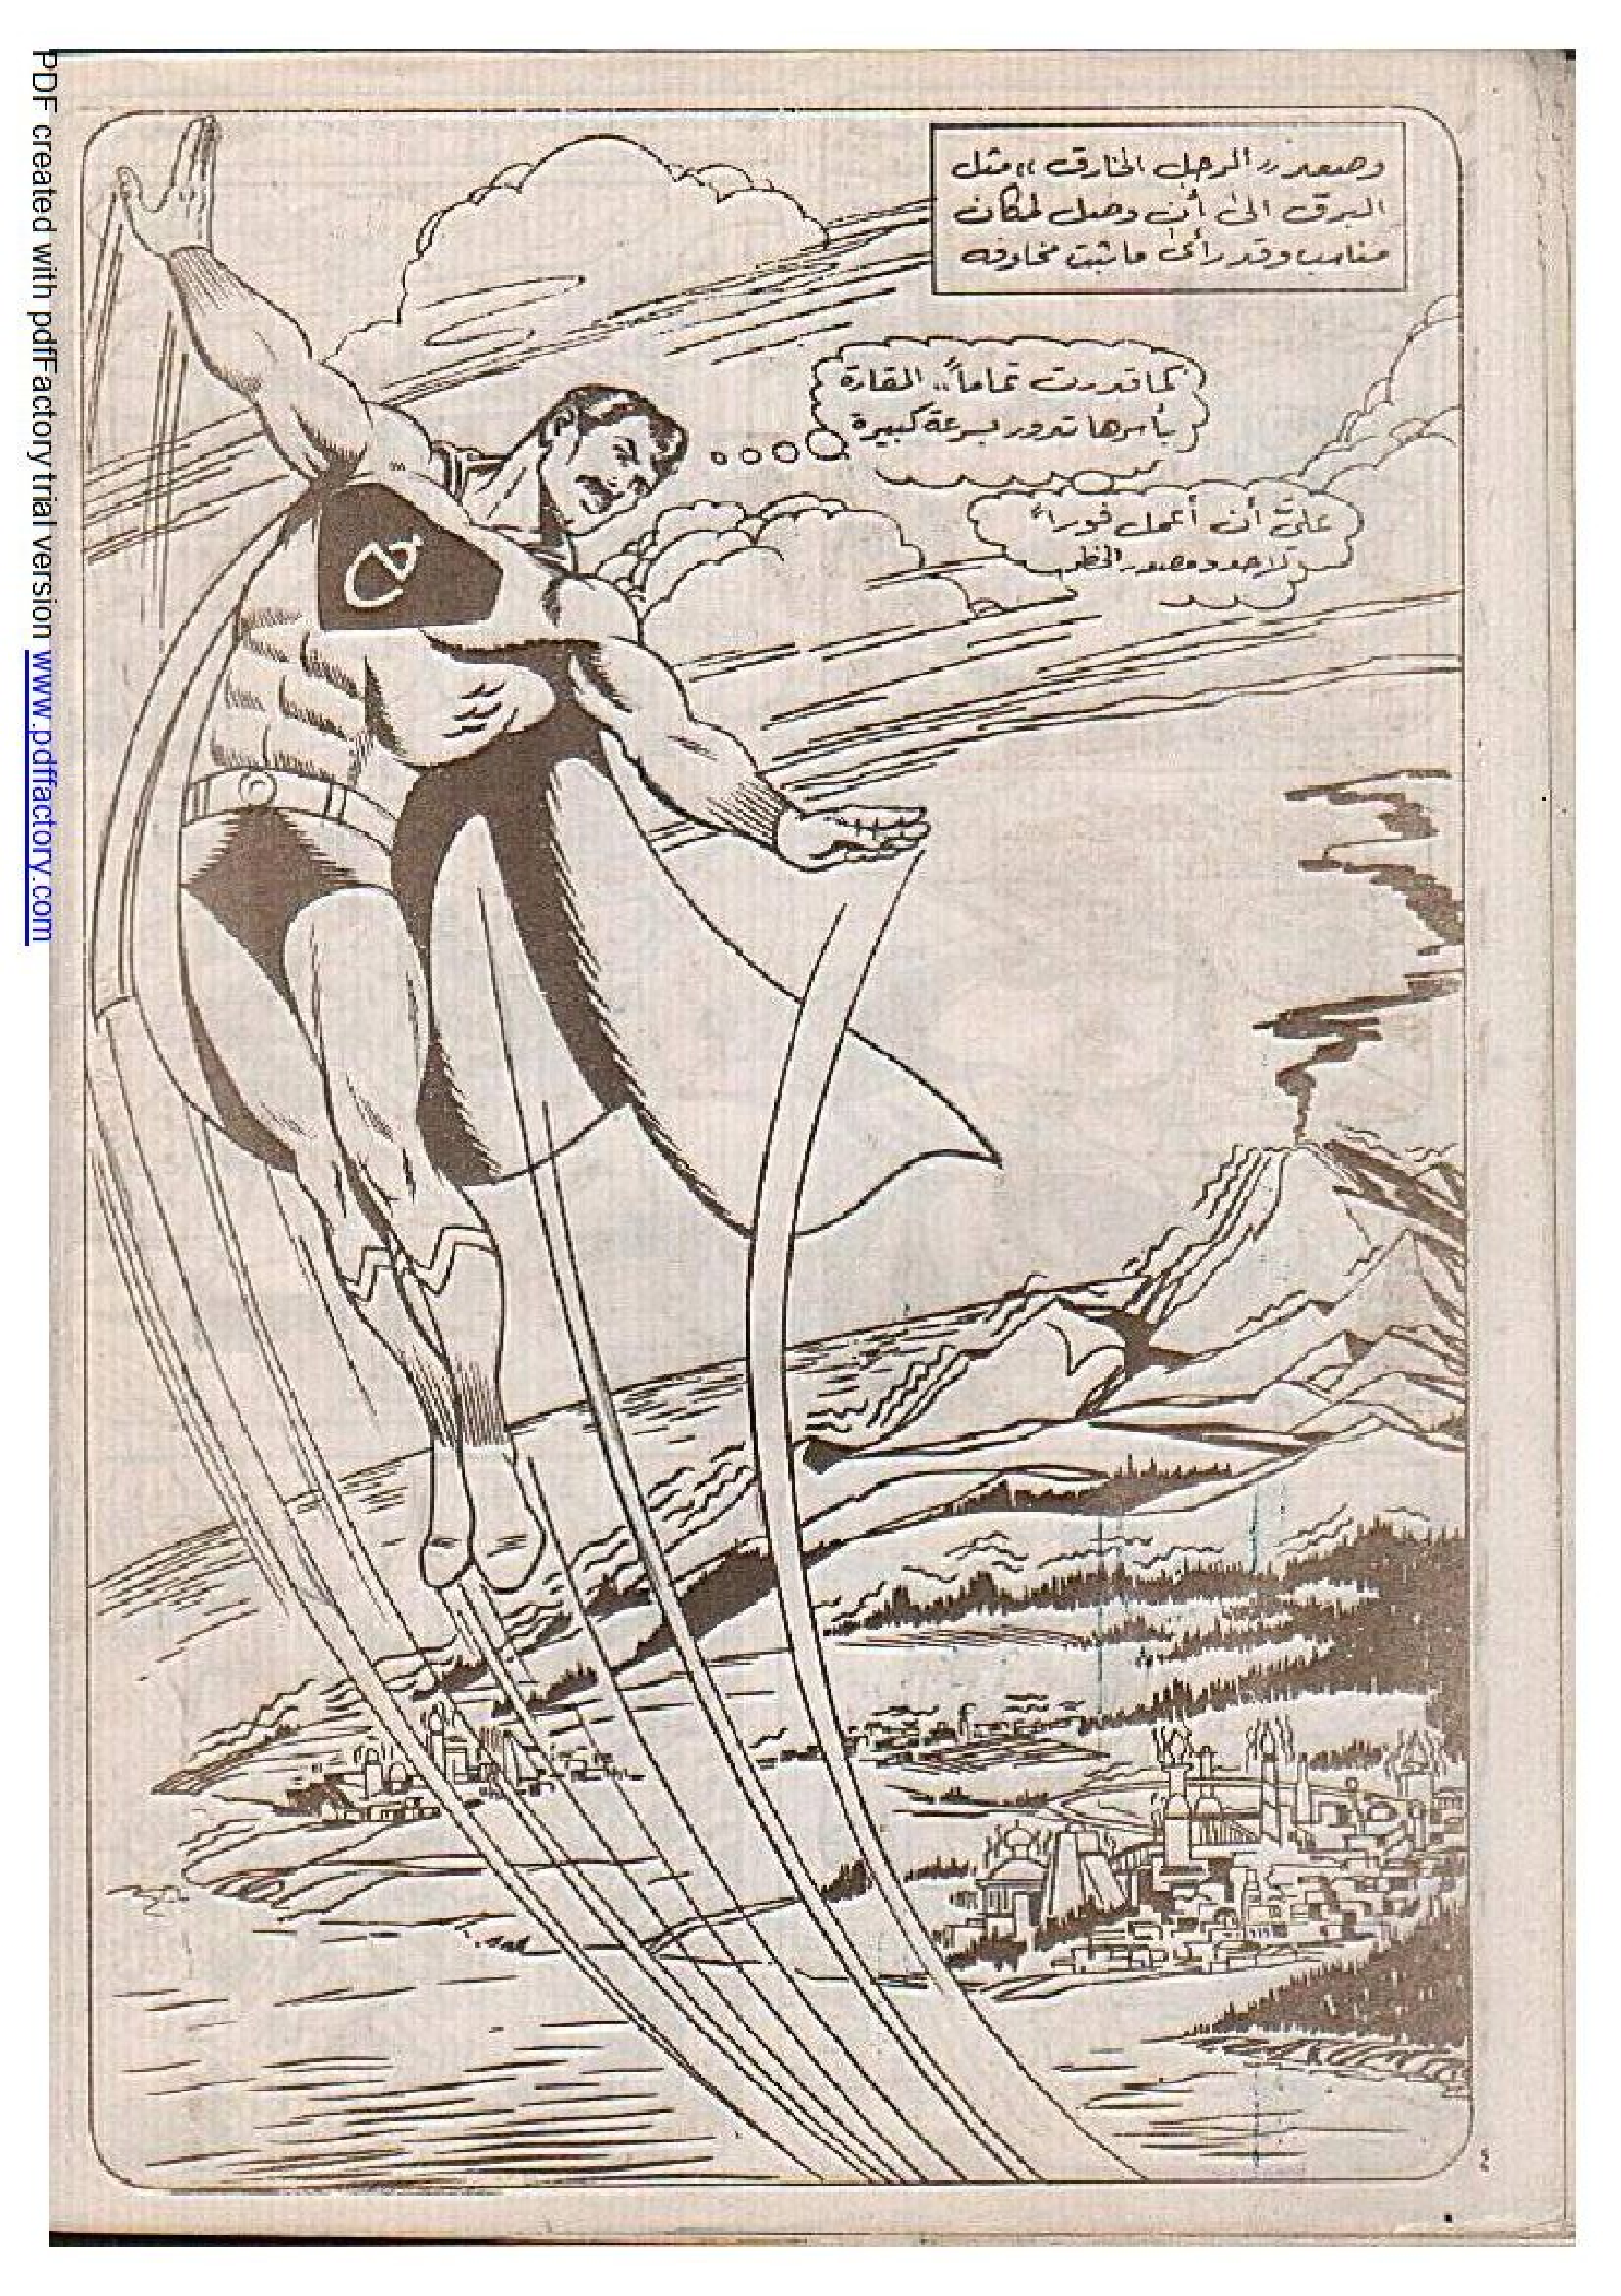 وصعد «الرجل الخارق» مثل
البرق الى أن وصل لمكان
مناسب وقد رأى ما ثبت مخاوفه
كما قدرت تماماً.. القارة
بأسرها تدور بسرعة كبيرة
عليّ أن أعمل فوراً
لاحدد مصدر الخطر
PDF created with pdfFactory trial version www.pdffactory.com